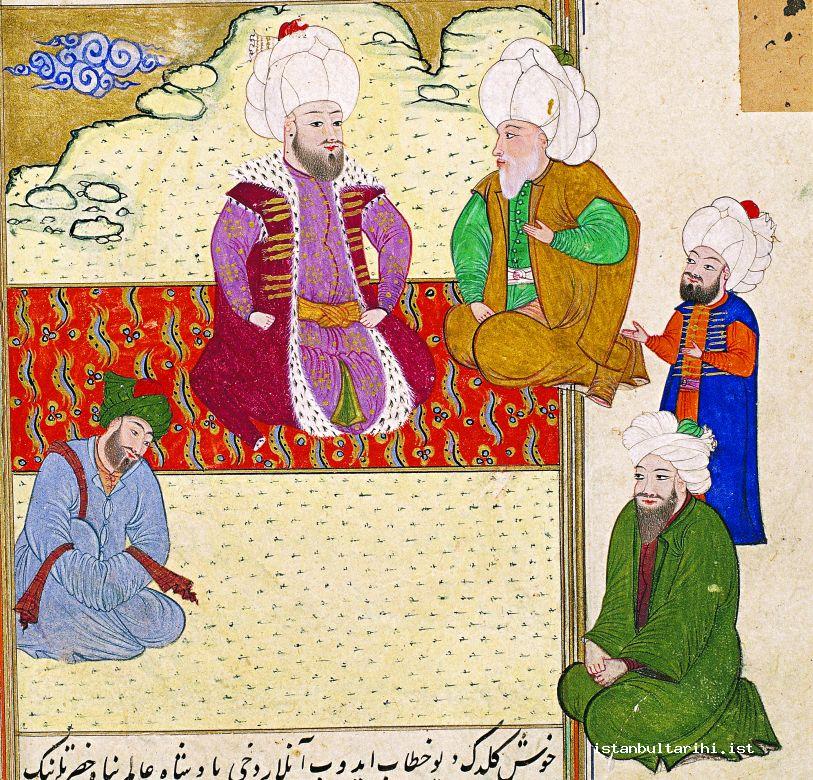 خوش كلدك ديو خطاب ايدوب آنلار دخى پادشاه عالم پناه حضرتلرينك
istanbultarihi.ist